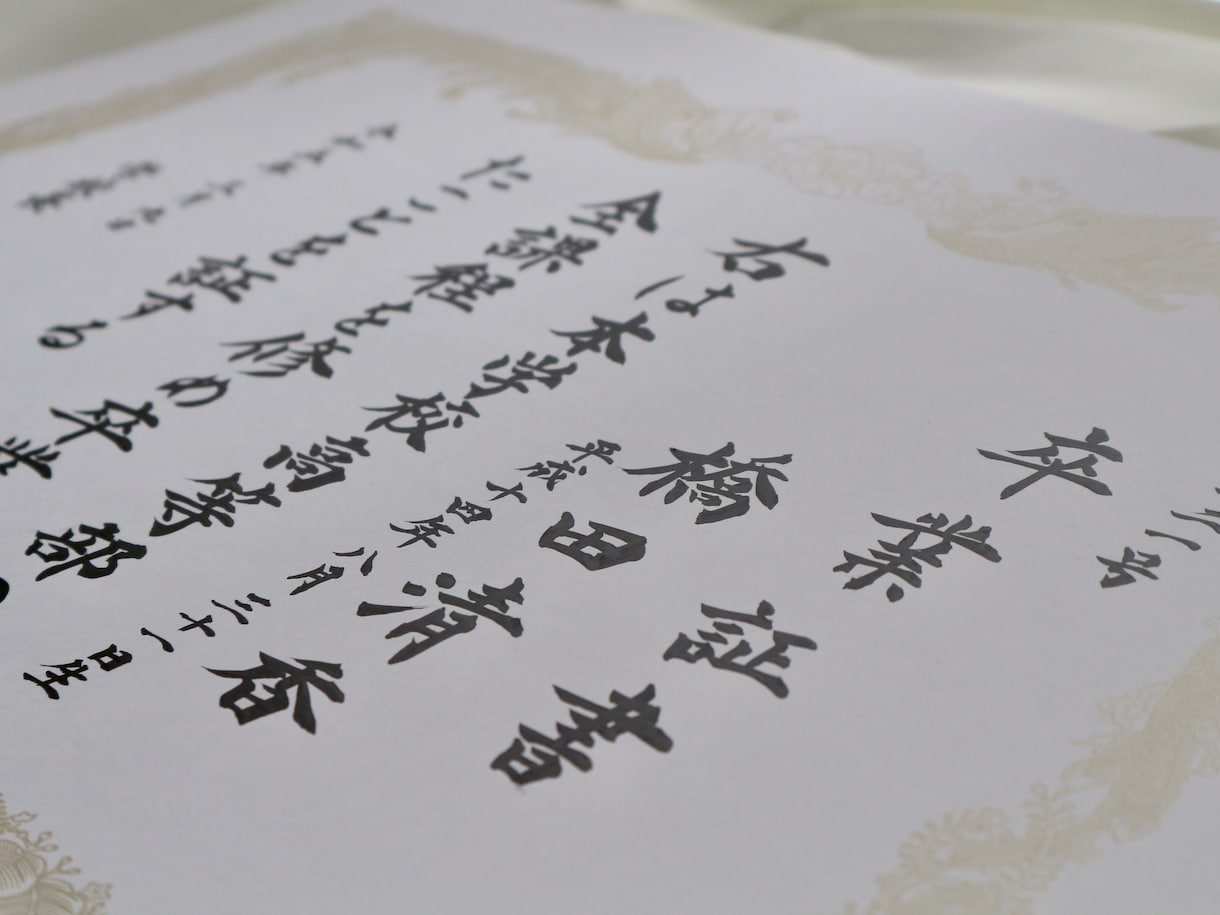 号
卒業証書
橋田清香
平成十四年八月三十一日生
右は本学校高等部
全課程を修め卒業
たことを証する